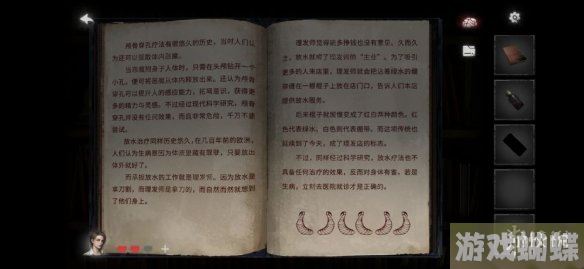 颅骨穿孔疗法有很悠久的历史，当时人们认
为还可以驱散体内恶魔。
当恶魔附身于人体时，只需在头颅钻开一个
小孔，便可将恶魔从体内释放出来。还认为颅骨
穿孔可以提升人的感应能力，拓宽意识，获得更
多的精力与灵感。不过经过现代科学研究，颅骨
穿孔并没有任何效果，而且非常危险，千万不能
尝试。
放水治疗同样历史悠久，在几百年前的欧洲，
人们认为生病是因为体液里藏有
体外就好了。
而承担放水的工作就是理发师。因为放水是
拿刀割，而理发师是拿刀的，而自然而然就想到
了他们身上。
理发师觉得能多挣钱也没有意见。久而久
之，放水就成了理发师的“主业”。为了吸引
更多的人来店里，理发师就会把沾着绿水的绷
带缠在一根棍子上放在店门口，告诉人们本店
提供放水服务。
后来棍子就慢慢变成了红白两种颜色。红
色代表绿水，白色则代表绷带。而这项传统也
延续到了今天，成了理发店的标志。
不过，同样经过科学研究，放水疗法也不
具备任何治疗的效果，反而对身体有害。若是
生病，立刻去医院就诊才是正确的。
游戏蝴蝶